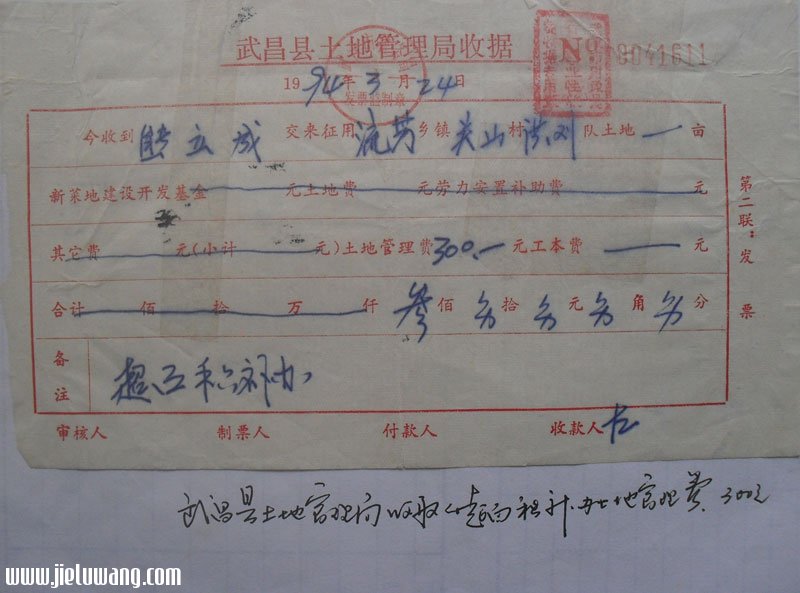 武昌县土地管理局收据
No 8041611
1994年3月24日
发票监制章
今收到 熊立成 交来征用 流芳 乡镇 关山 村 洪刘 队土地 一 亩
新菜地建设开发基金 元土地费 元劳力安置补助费 元
其它费 元(小计 元)土地管理费 300.— 元工本费 — 元
合计 佰 拾 万 仟 叁 佰 另 拾 另 元 另 角 另 分
备注 超面积补办
审核人 制票人 付款人 收款人
第二联：发票
武昌县土地管理局收取超面积补办土地管理费300元
www.jieluwang.com